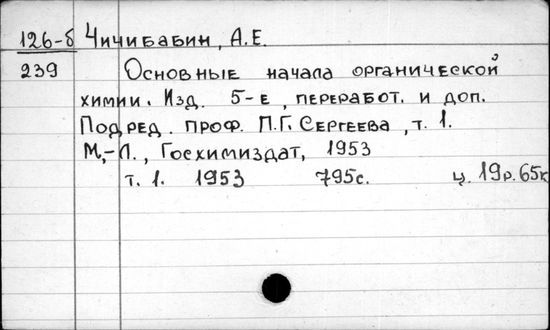 126-б Чичибабин, А.Е.
239 Основные начала органической
химии. Изд. 5-е, переработ. и доп.
Под ред. проф. П.Г. Сергеева, т. 1.
М,-Л., Госхимиздат, 1953
т. 1. 1953 795с. ц. 19р.65к